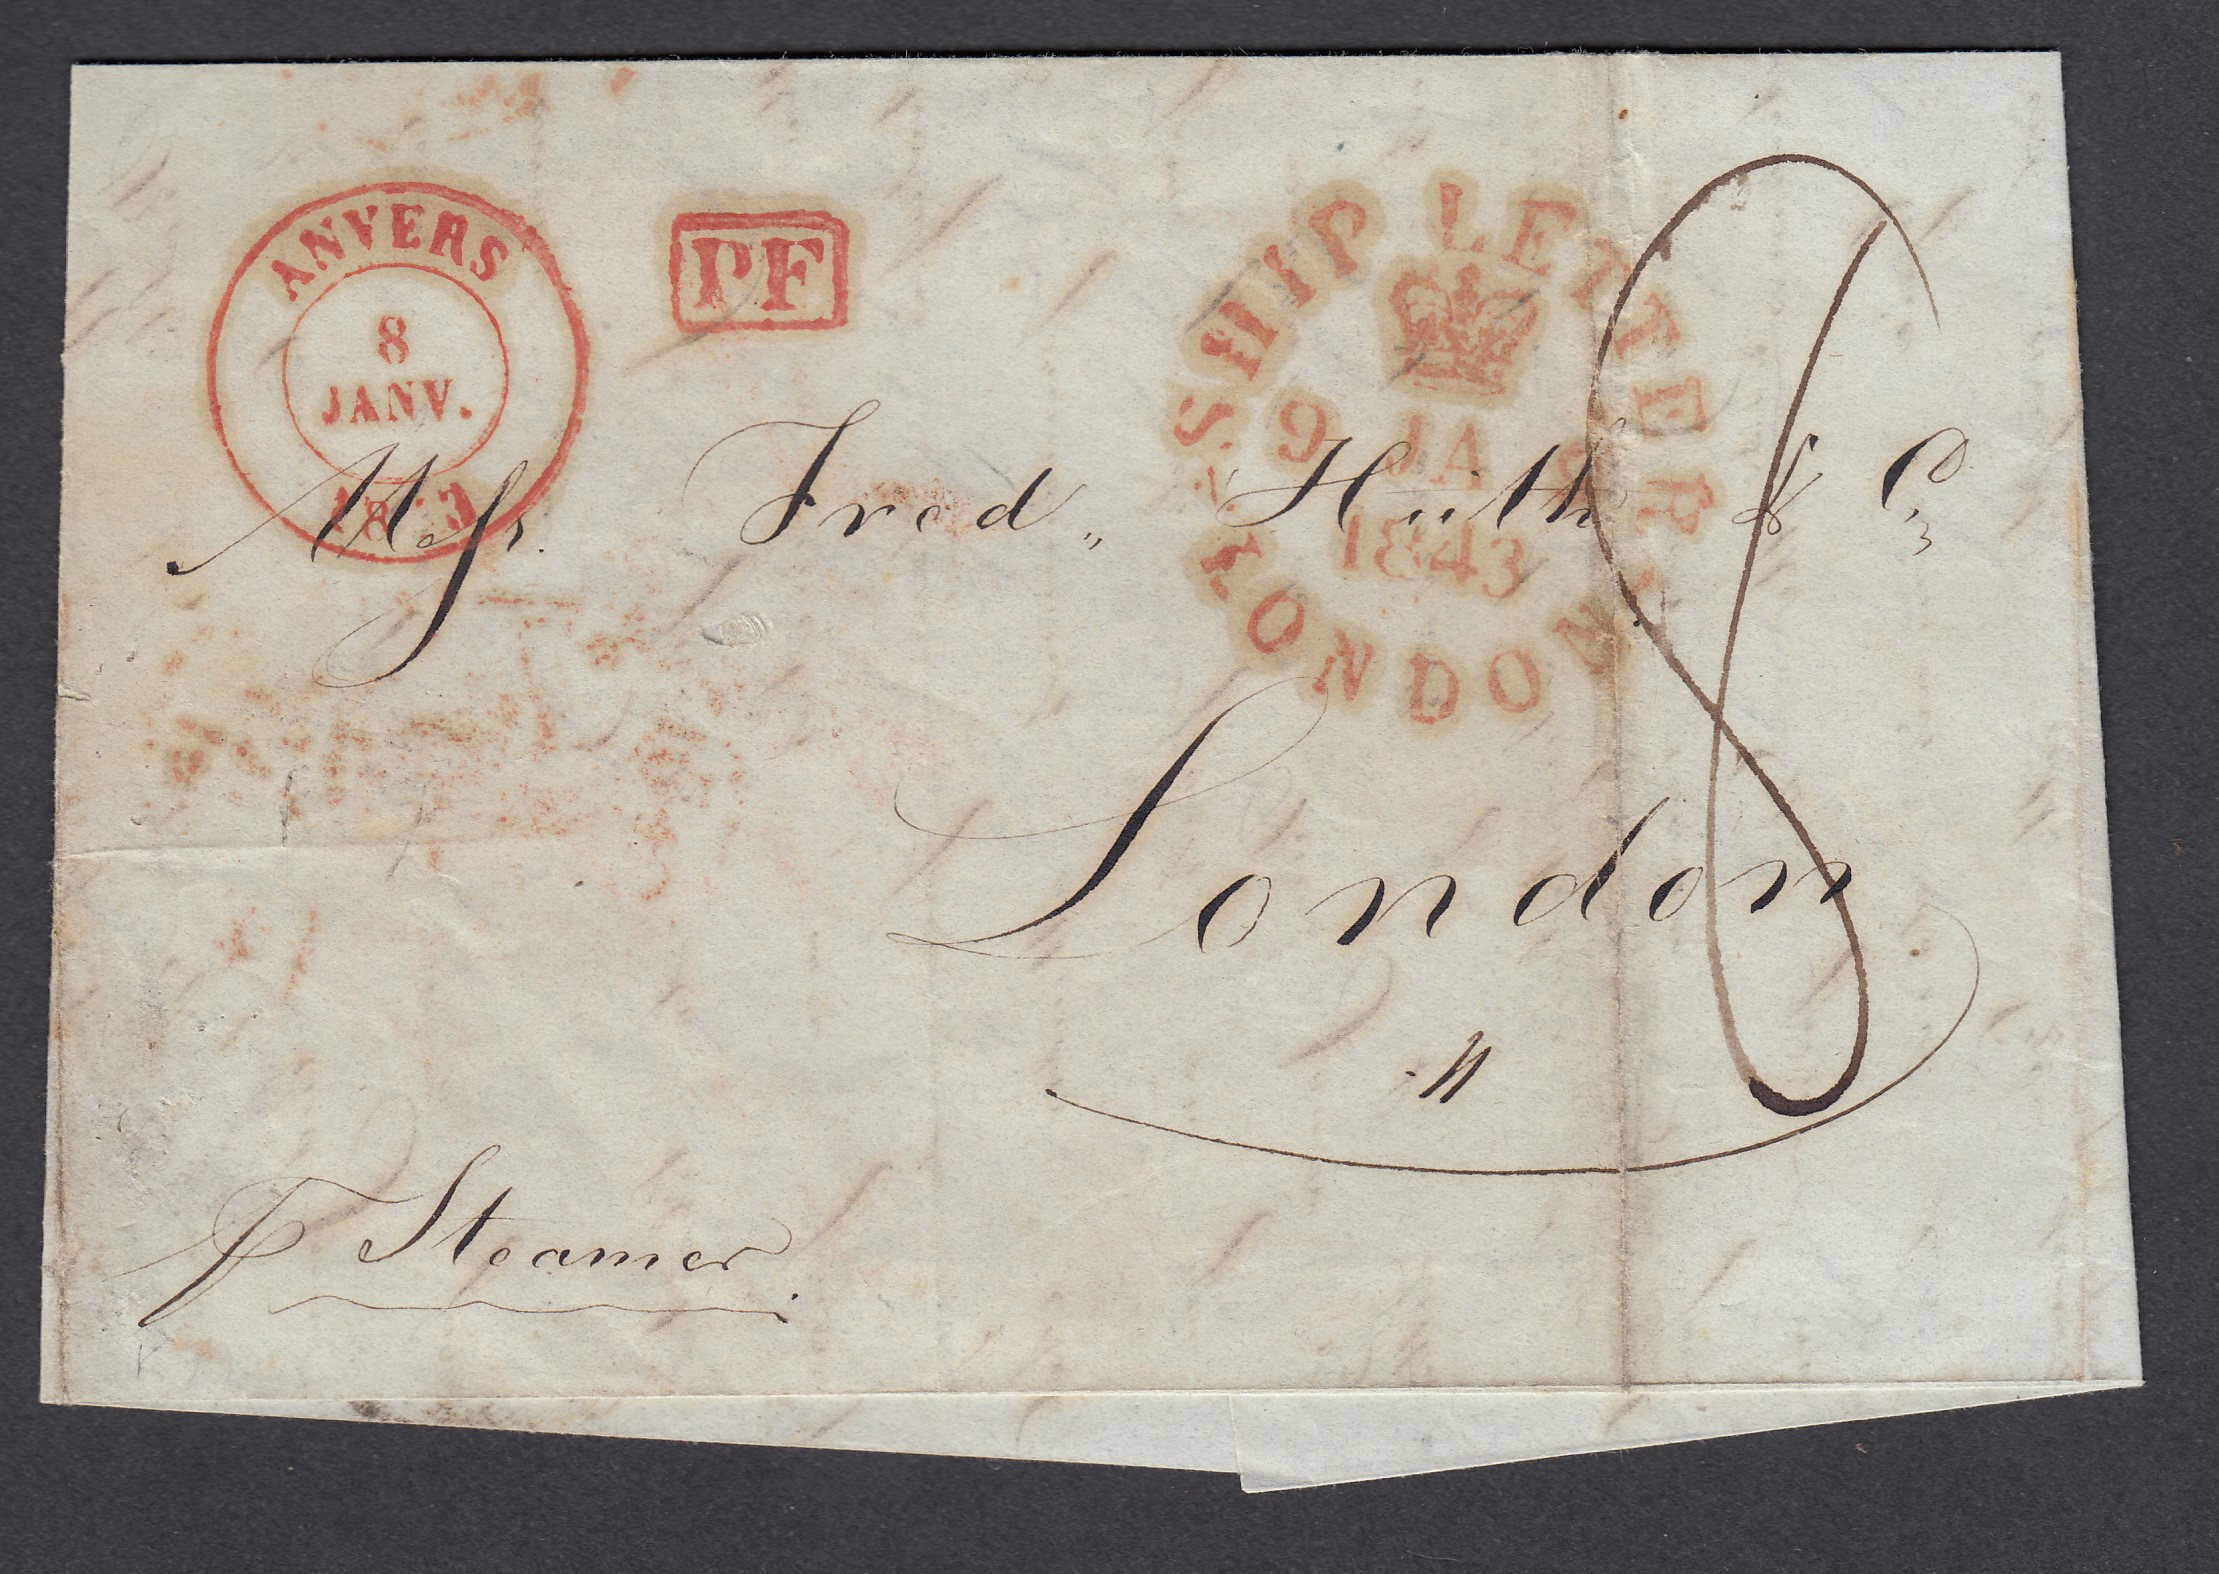 ANVERS
8
JANV.
1843
PF
SHIP LETTER
9 JA 9
1843
LONDON
8
Messrs. Fred„ Hüth & Co
London
p Steamer